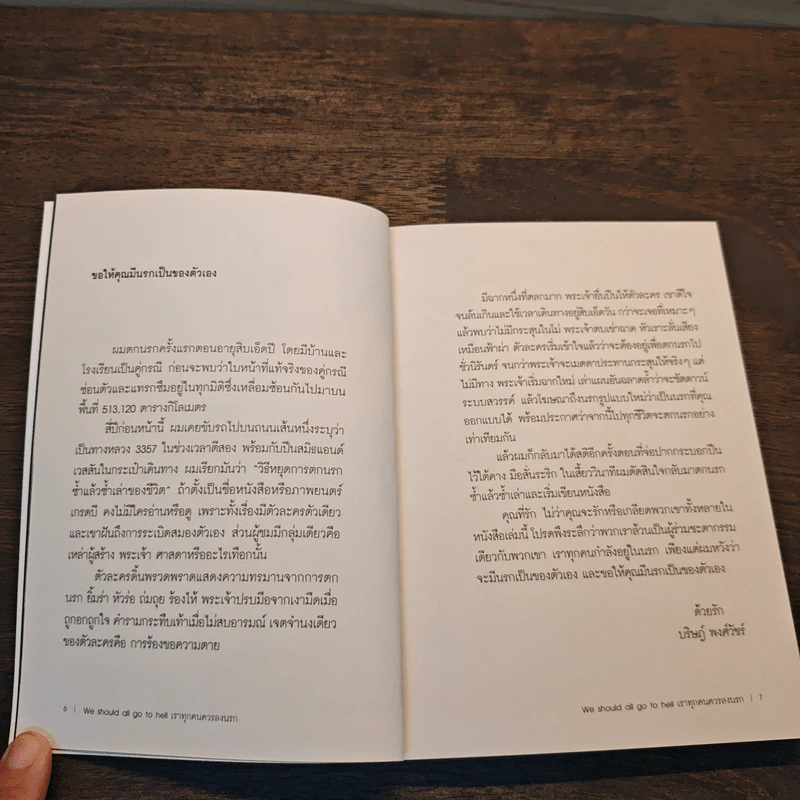 ขอให้คุณมีนรกเป็นของตัวเอง
ผมตกนรกครั้งแรกตอนอายุสิบเอ็ดปี โดยมีบ้านและ
โรงเรียนเป็นคู่กรณี ก่อนจะพบว่าใบหน้าที่แท้จริงของคู่กรณี
ซ่อนตัวและแทรกซึมอยู่ในทุกมิติซึ่งเหลื่อมซ้อนกันไปมาบน
พื้นที่ 513,120 ตารางกิโลเมตร
สี่ปีก่อนหน้านี้ ผมเคยขับรถไปบนถนนเส้นหนึ่งระบุว่า
เป็นทางหลวง 3357 ในช่วงเวลาตีสอง พร้อมกับปืนสมิธแอนด์
เวสสันในกระเป๋าเดินทาง ผมเรียกมันว่า "วิธีหยุดการตกนรก
ซ้ำแล้วซ้ำเล่าของชีวิต" ถ้าตั้งเป็นชื่อหนังสือหรือภาพยนตร์
เกรดบี คงไม่มีใครอ่านหรือดู เพราะทั้งเรื่องมีตัวละครตัวเดียว
และเขาฝันถึงการระเบิดสมองตัวเอง ส่วนผู้ชมมีกลุ่มเดียวคือ
เหล่าผู้สร้าง พระเจ้า ศาสดาหรืออะไรเทือกนั้น
ตัวละครดิ้นพรวดพราดแสดงความทรมานจากการตก
นรก ยิ้มร่า หัวร่อ ถ่มถุย ร้องไห้ พระเจ้าปรบมือจากเงามืดเมื่อ
ถูกอกถูกใจ คำรามกระทืบเท้าเมื่อไม่สบอารมณ์ เจตจำนงเดียว
ของตัวละครคือ การร้องขอความตาย
6 | We should all go to hell เราทุกคนควรลงนรก
มีฉากหนึ่งที่ตลกมาก พระเจ้ายื่นปืนให้ตัวละคร เขาดีใจ
จนล้นเกินและใช้เวลาเดินทางอยู่สิบเอ็ดวัน กว่าจะเจอที่เหมาะๆ
แล้วพบว่าไม่มีกระสุนในโม่ พระเจ้าตบเข่าฉาด หัวเราะลั่นเสียง
เหมือนฟ้าผ่า ตัวละครเริ่มเข้าใจแล้วว่าจะต้องอยู่เพื่อตกนรกไป
ชั่วนิรันดร์ จนกว่าพระเจ้าจะเมตตาประทานกระสุนให้จริงๆ แต่
ไม่มีทาง พระเจ้าเริ่มฉากใหม่ เล่าแผนอันฉลาดล้ำว่าจะชัตดาวน์
ระบบสวรรค์ แล้วโฆษณาถึงนรกรูปแบบใหม่ว่าเป็นนรกที่คุณ
ออกแบบได้ พร้อมประกาศว่าจากนี้ไปทุกชีวิตจะตกนรกอย่าง
เท่าเทียมกัน
แล้วผมก็กลับมาได้สติอีกครั้งตอนที่จ่อปากกระบอกปืน
ไว้ใต้คาง มือสั่นระริก ในเสี้ยววินาทีผมตัดสินใจกลับมาตกนรก
ซ้ำแล้วซ้ำเล่าและเริ่มเขียนหนังสือ
คุณที่รัก ไม่ว่าคุณจะรักหรือเกลียดพวกเขาทั้งหลายใน
หนังสือเล่มนี้ โปรดพึงระลึกว่าพวกเราล้วนเป็นผู้ร่วมชะตากรรม
เดียวกับพวกเขา เราทุกคนกำลังอยู่ในนรก เพียงแต่ผมหวังว่า
จะมีนรกเป็นของตัวเอง และขอให้คุณมีนรกเป็นของตัวเอง
ด้วยรัก
บริษฎ์ พงศ์วัชร์
We should all go to hell เราทุกคนควรลงนรก | 7